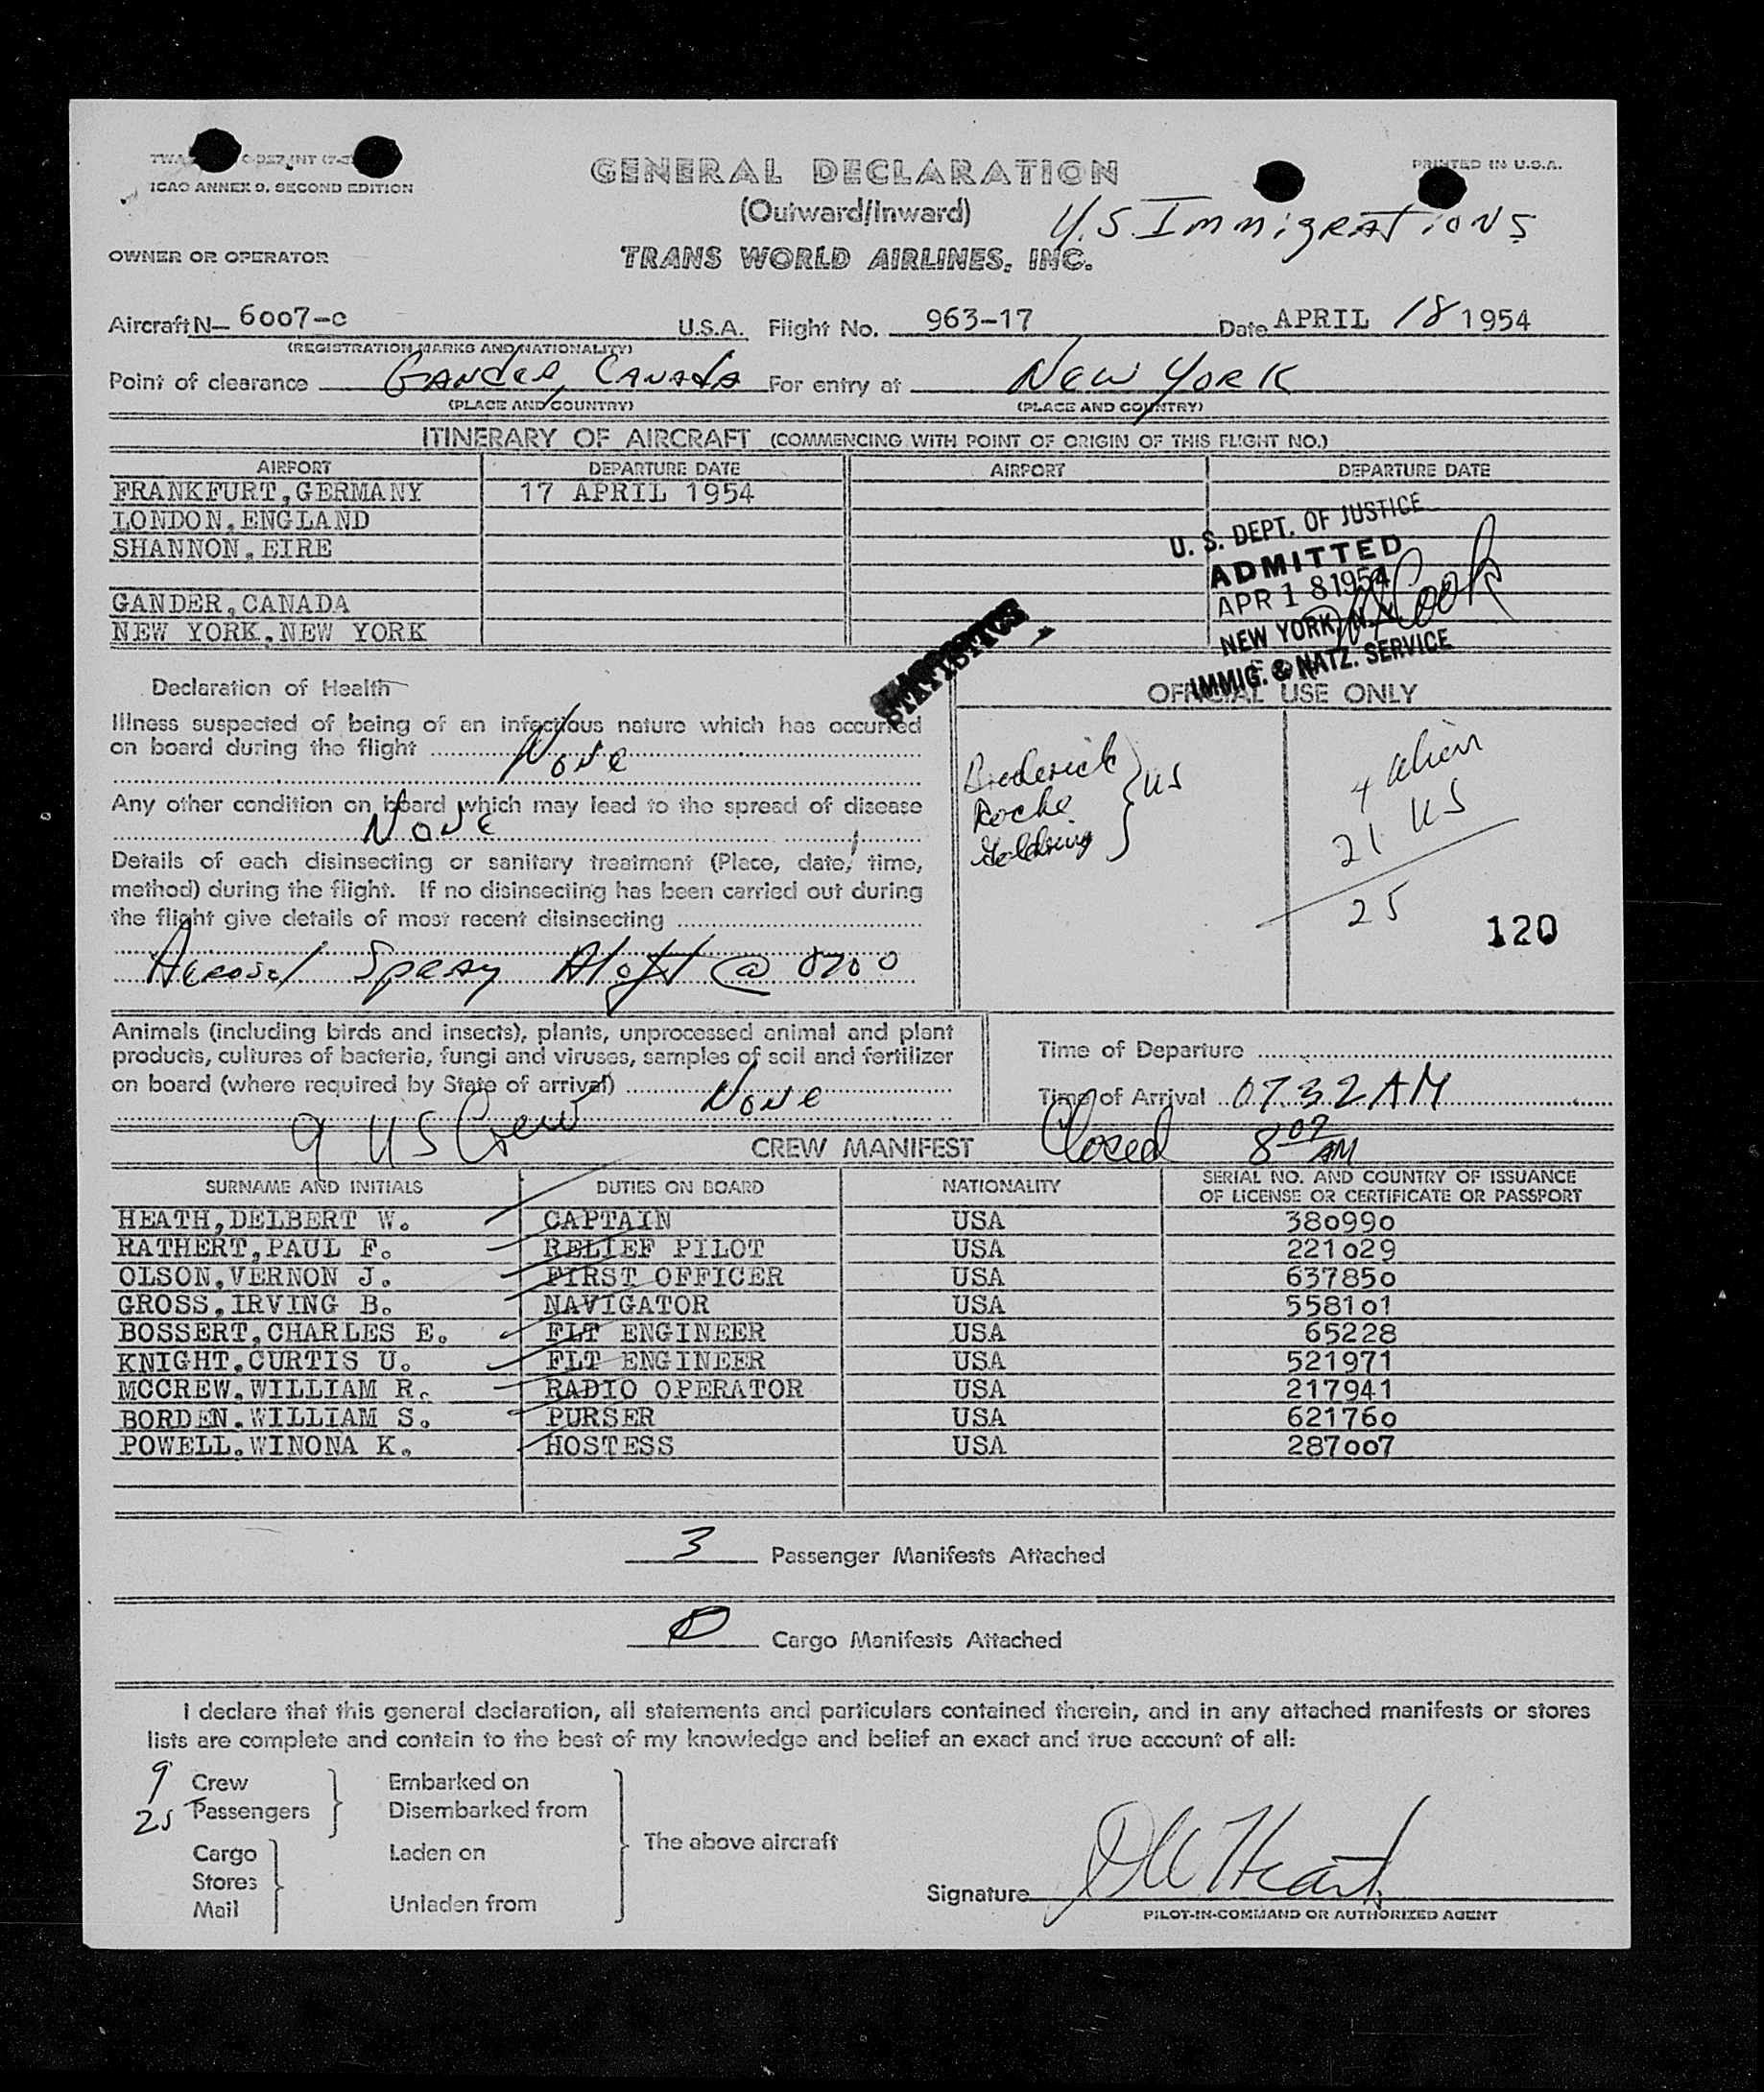 ICAO ANNEX 9, SECOND EDITION
PRINTED IN U.S.A.
GENERAL DECLARATION
(Outward/Inward)
U.S. Immigrations
OWNER OR OPERATOR
TRANS WORLD AIRLINES, INC.
Aircraft N- 6007-c U.S.A. Flight No. 963-17 Date APRIL 18 1954
(REGISTRATION MARKS AND NATIONALITY)
Point of clearance Gander, Canada For entry at New York
(PLACE AND COUNTRY) (PLACE AND COUNTRY)
ITINERARY OF AIRCRAFT (COMMENCING WITH POINT OF ORIGIN OF THIS FLIGHT NO.)
AIRPORT DEPARTURE DATE AIRPORT DEPARTURE DATE
FRANKFURT, GERMANY 17 APRIL 1954
LONDON, ENGLAND
SHANNON, EIRE
GANDER, CANADA
NEW YORK, NEW YORK
U. S. DEPT. OF JUSTICE
ADMITTED
APR 18 1954
Cook
NEW YORK, N.Y.
IMMIG. & NATZ. SERVICE
STATISTICS
Declaration of Health
OFFICIAL USE ONLY
Illness suspected of being of an infectious nature which has occurred
on board during the flight None
Any other condition on board which may lead to the spread of disease
None
Details of each disinsecting or sanitary treatment (Place, date, time,
method) during the flight. If no disinsecting has been carried out during
the flight give details of most recent disinsecting
Aerosol Spray Aloft @ 0700
Broderick
Roche
Goldring
US
4 alien
21 US
25
120
Animals (including birds and insects), plants, unprocessed animal and plant
products, cultures of bacteria, fungi and viruses, samples of soil and fertilizer
on board (where required by State of arrival) None
Time of Departure
Time of Arrival 0732 AM
9 US Crew
CREW MANIFEST
Closed 8 09 AM
SURNAME AND INITIALS DUTIES ON BOARD NATIONALITY SERIAL NO. AND COUNTRY OF ISSUANCE
OF LICENSE OR CERTIFICATE OR PASSPORT
HEATH, DELBERT W. CAPTAIN USA 380990
RATHERT, PAUL F. RELIEF PILOT USA 221029
OLSON, VERNON J. FIRST OFFICER USA 637850
GROSS, IRVING B. NAVIGATOR USA 558101
BOSSERT, CHARLES E. FLT ENGINEER USA 65228
KNIGHT, CURTIS U. FLT ENGINEER USA 521971
MCCREW, WILLIAM R. RADIO OPERATOR USA 217941
BORDEN, WILLIAM S. PURSER USA 621760
POWELL, WINONA K. HOSTESS USA 287007
3 Passenger Manifests Attached
0 Cargo Manifests Attached
I declare that this general declaration, all statements and particulars contained therein, and in any attached manifests or stores
lists are complete and contain to the best of my knowledge and belief an exact and true account of all:
9 Crew Embarked on
25 Passengers Disembarked from
The above aircraft
Cargo Laden on
Stores
Mail Unladen from
Signature DW Heath
PILOT-IN-COMMAND OR AUTHORIZED AGENT